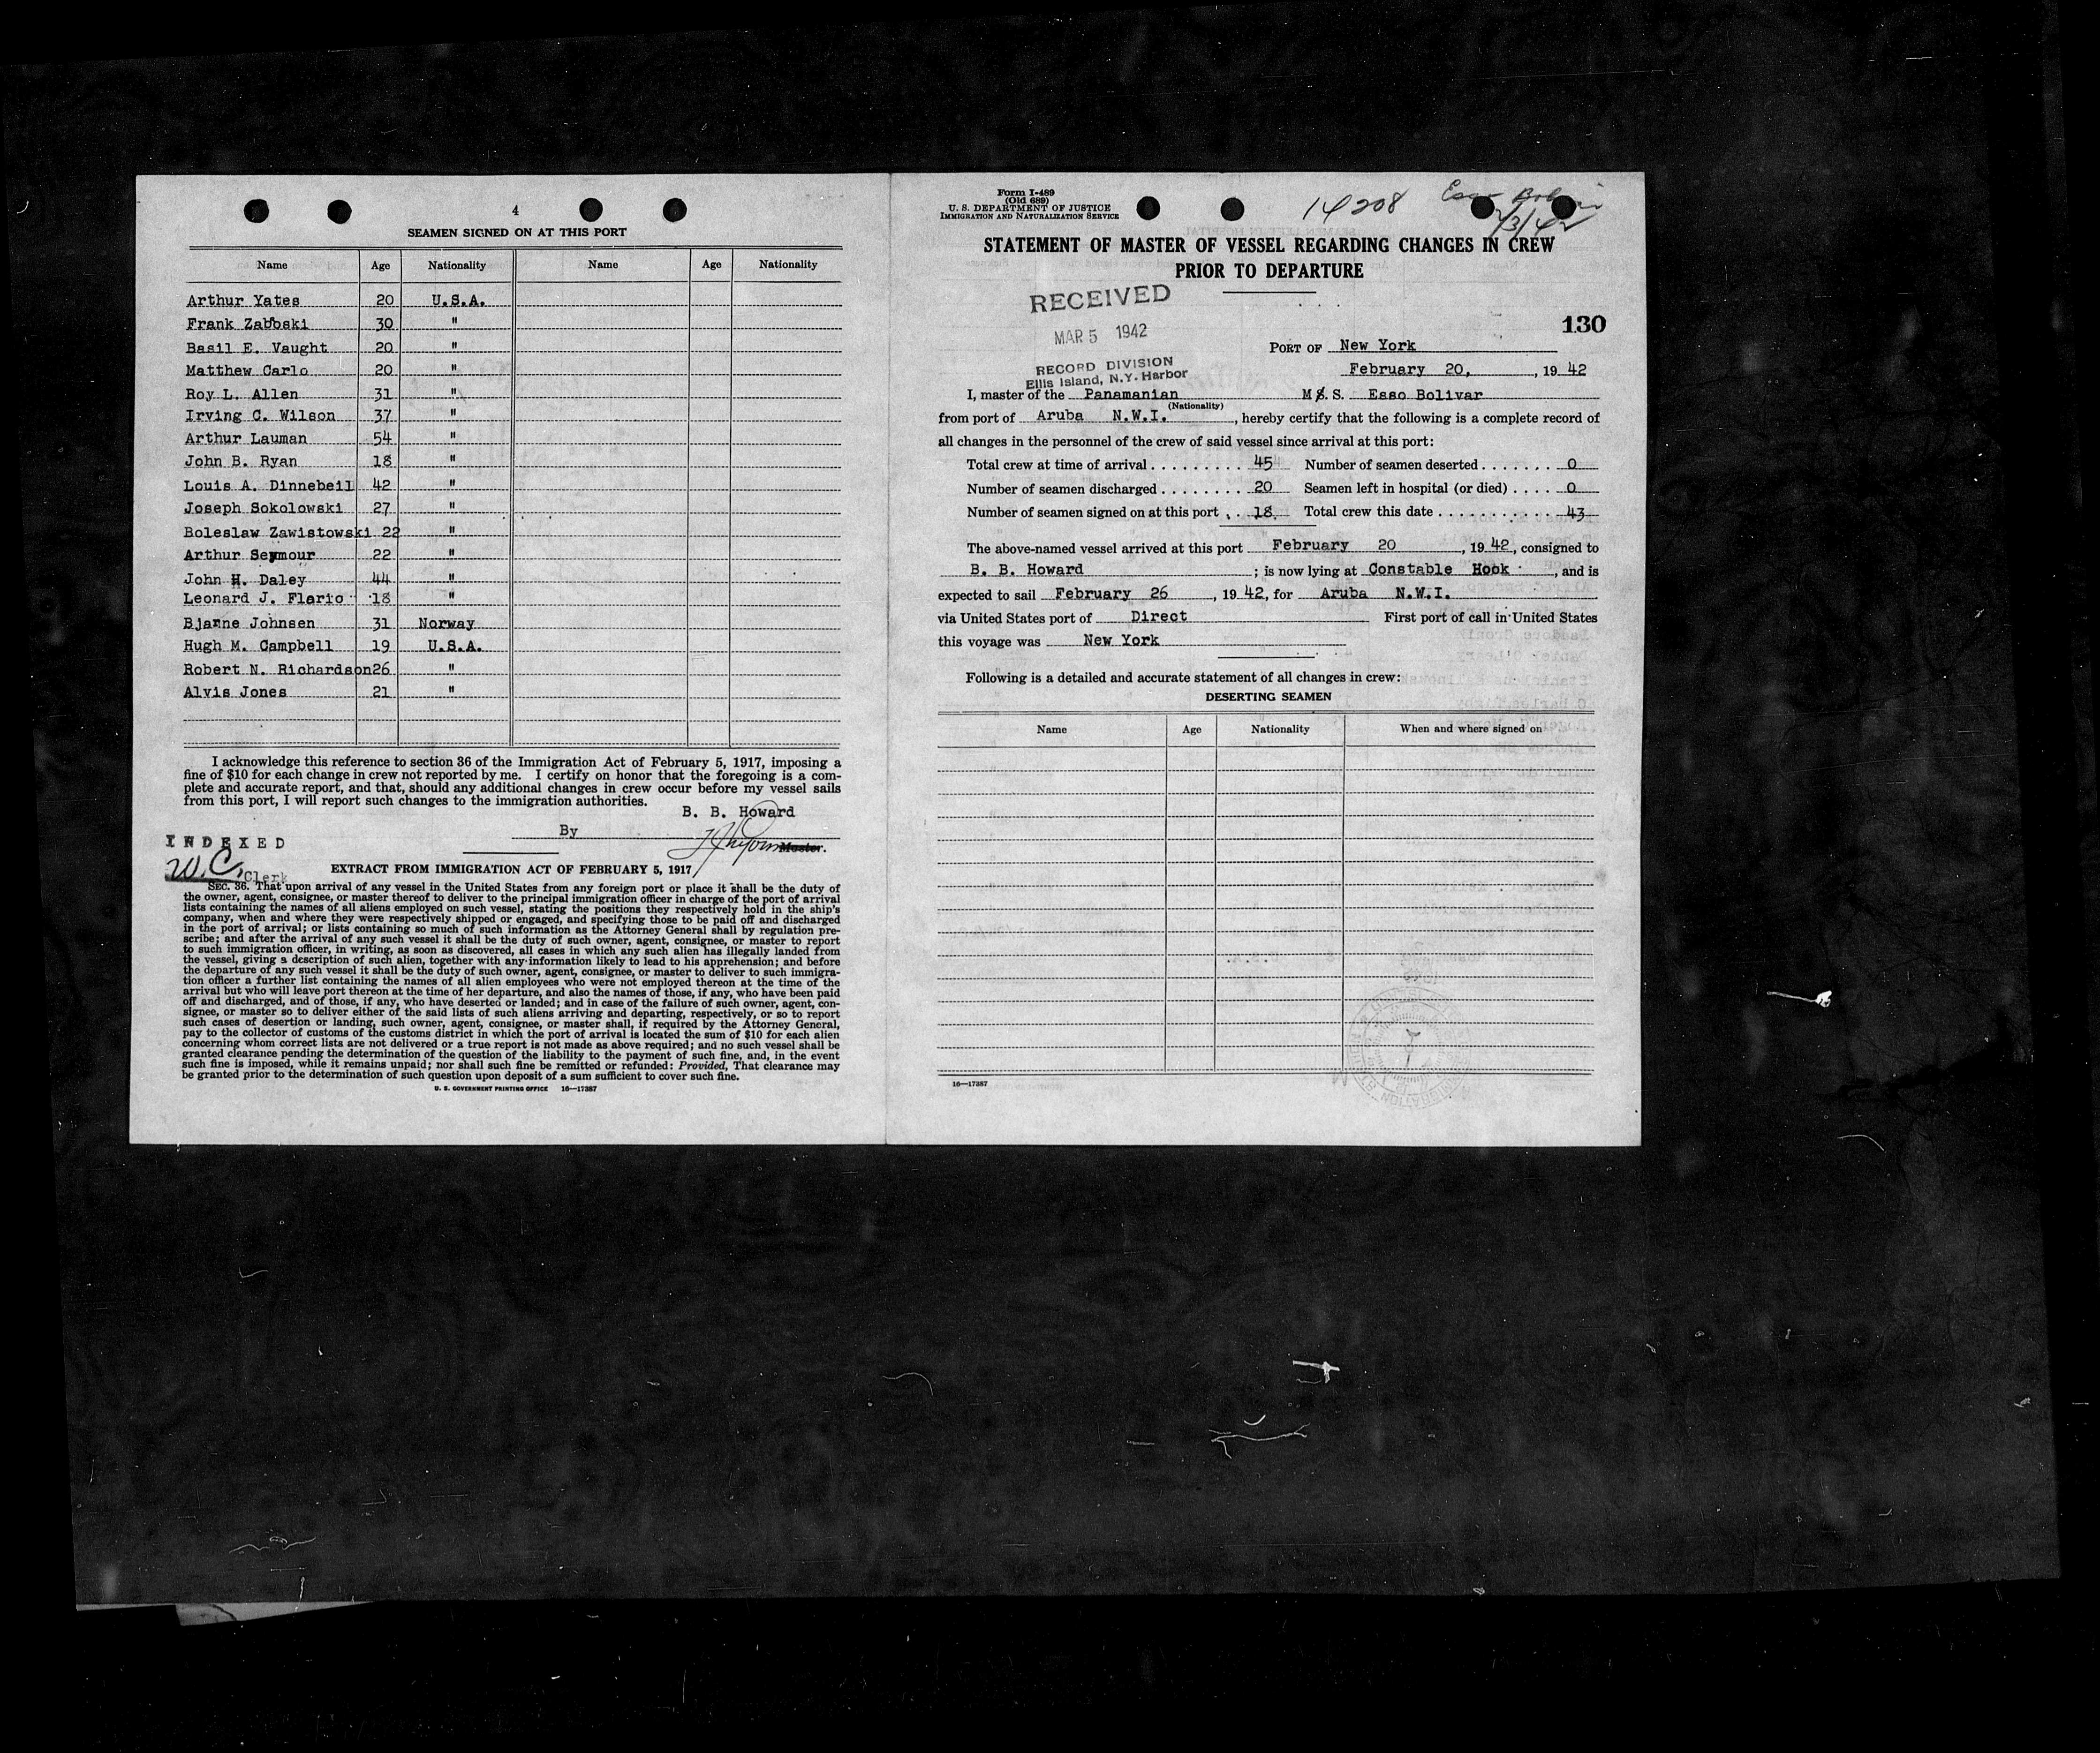 4
SEAMEN SIGNED ON AT THIS PORT
Name Age Nationality Name Age Nationality
Arthur Yates 20 U.S.A.
Frank Zabbski 30 "
Basil E. Vaught 20 "
Matthew Carlo 20 "
Roy L. Allen 31 "
Irving C. Wilson 37 "
Arthur Lauman 54 "
John B. Ryan 18 "
Louis A. Dinnebeil 42 "
Joseph Sokolowski 27 "
Boleslaw Zawistowski 22 "
Arthur Seymour 22 "
John H. Daley 44 "
Leonard J. Florio 18 "
Bjarne Johnsen 31 Norway
Hugh M. Campbell 19 U.S.A.
Robert N. Richardson 26 "
Alvis Jones 21 "
I acknowledge this reference to section 36 of the Immigration Act of February 5, 1917, imposing a
fine of $10 for each change in crew not reported by me. I certify on honor that the foregoing is a com-
plete and accurate report, and that, should any additional changes in crew occur before my vessel sails
from this port, I will report such changes to the immigration authorities.
B. B. Howard
By
Master.
INDEXED
W.C. Clerk
EXTRACT FROM IMMIGRATION ACT OF FEBRUARY 5, 1917
SEC. 36. That upon arrival of any vessel in the United States from any foreign port or place it shall be the duty of
the owner, agent, consignee, or master thereof to deliver to the principal immigration officer in charge of the port of arrival
lists containing the names of all aliens employed on such vessel, stating the positions they respectively hold in the ship's
company, when and where they were respectively shipped or engaged, and specifying those to be paid off and discharged
in the port of arrival; or lists containing so much of such information as the Attorney General shall by regulation pre-
scribe; and after the arrival of any such vessel it shall be the duty of such owner, agent, consignee, or master to report
to such immigration officer, in writing, as soon as discovered, all cases in which any such alien has illegally landed from
the vessel, giving a description of such alien, together with any information likely to lead to his apprehension; and before
the departure of any such vessel it shall be the duty of such owner, agent, consignee, or master to deliver to such immigra-
tion officer a further list containing the names of all alien employees who were not employed thereon at the time of the
arrival but who will leave port thereon at the time of her departure, and also the names of those, if any, who have been paid
off and discharged, and of those, if any, who have deserted or landed; and in case of the failure of such owner, agent, con-
signee, or master so to deliver either of the said lists of such aliens arriving and departing, respectively, or so to report
such cases of desertion or landing, such owner, agent, consignee, or master shall, if required by the Attorney General,
pay to the collector of customs of the customs district in which the port of arrival is located the sum of $10 for each alien
concerning whom correct lists are not delivered or a true report is not made as above required; and no such vessel shall be
granted clearance pending the determination of the question of the liability to the payment of such fine, and, in the event
such fine is imposed, while it remains unpaid; nor shall such fine be remitted or refunded: Provided, That clearance may
be granted prior to the determination of such question upon deposit of a sum sufficient to cover such fine.
U. S. GOVERNMENT PRINTING OFFICE 16—17387
Form I-489
(Old 689)
U. S. DEPARTMENT OF JUSTICE
IMMIGRATION AND NATURALIZATION SERVICE
14208
Esso Bolivar
STATEMENT OF MASTER OF VESSEL REGARDING CHANGES IN CREW
PRIOR TO DEPARTURE
RECEIVED
MAR 5 1942
RECORD DIVISION
Ellis Island, N.Y. Harbor
130
PORT OF New York
February 20, , 19 42
I, master of the Panamanian M S. S. Esso Bolivar
(Nationality)
from port of Aruba N.W.I. , hereby certify that the following is a complete record of
all changes in the personnel of the crew of said vessel since arrival at this port:
Total crew at time of arrival . . . . . . . . . 45 Number of seamen deserted . . . . . . . 0
Number of seamen discharged . . . . . . . . 20 Seamen left in hospital (or died) . . . . 0
Number of seamen signed on at this port . . 18 Total crew this date . . . . . . . . . . . 43
The above-named vessel arrived at this port February 20 , 19 42, consigned to
B. B. Howard ; is now lying at Constable Hook , and is
expected to sail February 26 , 19 42, for Aruba N.W.I.
via United States port of Direct First port of call in United States
this voyage was New York
Following is a detailed and accurate statement of all changes in crew:
DESERTING SEAMEN
Name Age Nationality When and where signed on
16—17387